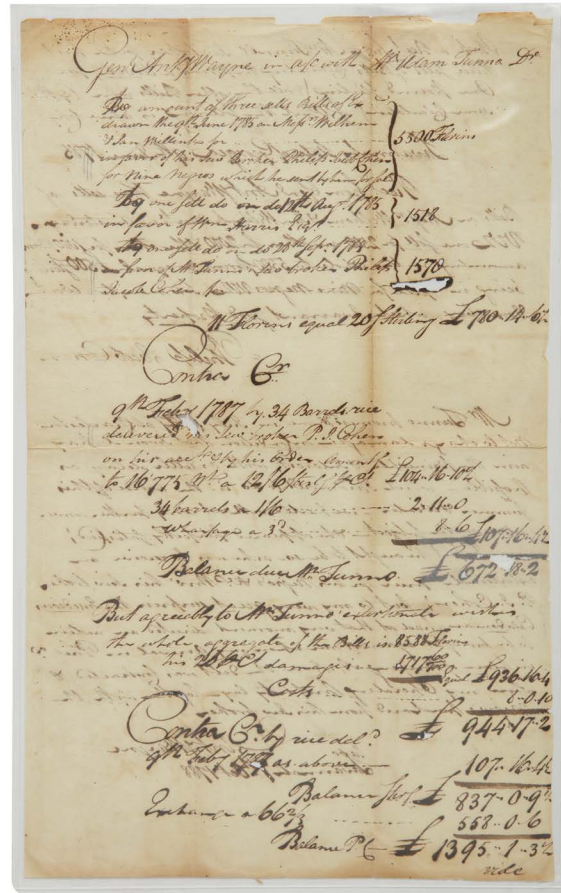 Genl Anty Wayne in a/c with Mr Adam Tunno Dr
To amount of three setts Bills of Ex
drawn the 9th June 1785 on Messrs Wilhem
& Jan Willink for 5500 Florins
in favor of his Jew Broker Philip Jacob Cohen
for Nine Negros which he sent by him for sale
To one sett do on do 12th Augt 1785
in favor of Wm Harris Esqr 1518
To one sett do on do 20th Septr 1785
in favor of Mr Tunno's Jew broker Philip 1570
Jacob Cohen for
Florins equal to Sterling £ 780-14-6½
Contra Cr
9th Feby 1787 by 34 Barrels rice
delivered his Jew broker P. J. Cohen
on his acct & by his order amount
to 16775 Nt a 12/6 Sterg Ct £104-16-10½
34 barrels a 1/6 2-11-0
Wharfage a 3d 8-6 £107-16-4½
Balance due Mr Tunno £ 672-18-2
But agreeably to Mr Tunno exhorbitant wishes
the whole aggregate of the Bills is 8588 Florins
his 20 P Ct damage is 1717
equal £936-16-4
Costs 8-0-10
£ 944-17-2
Contra Cr by rice deld
9th Feby 1787 as above 107-16-4½
Balance Sterg £ 837-0-9½
Exchange a 66⅔ 558-0-6
Balance £ 1395-1-3½